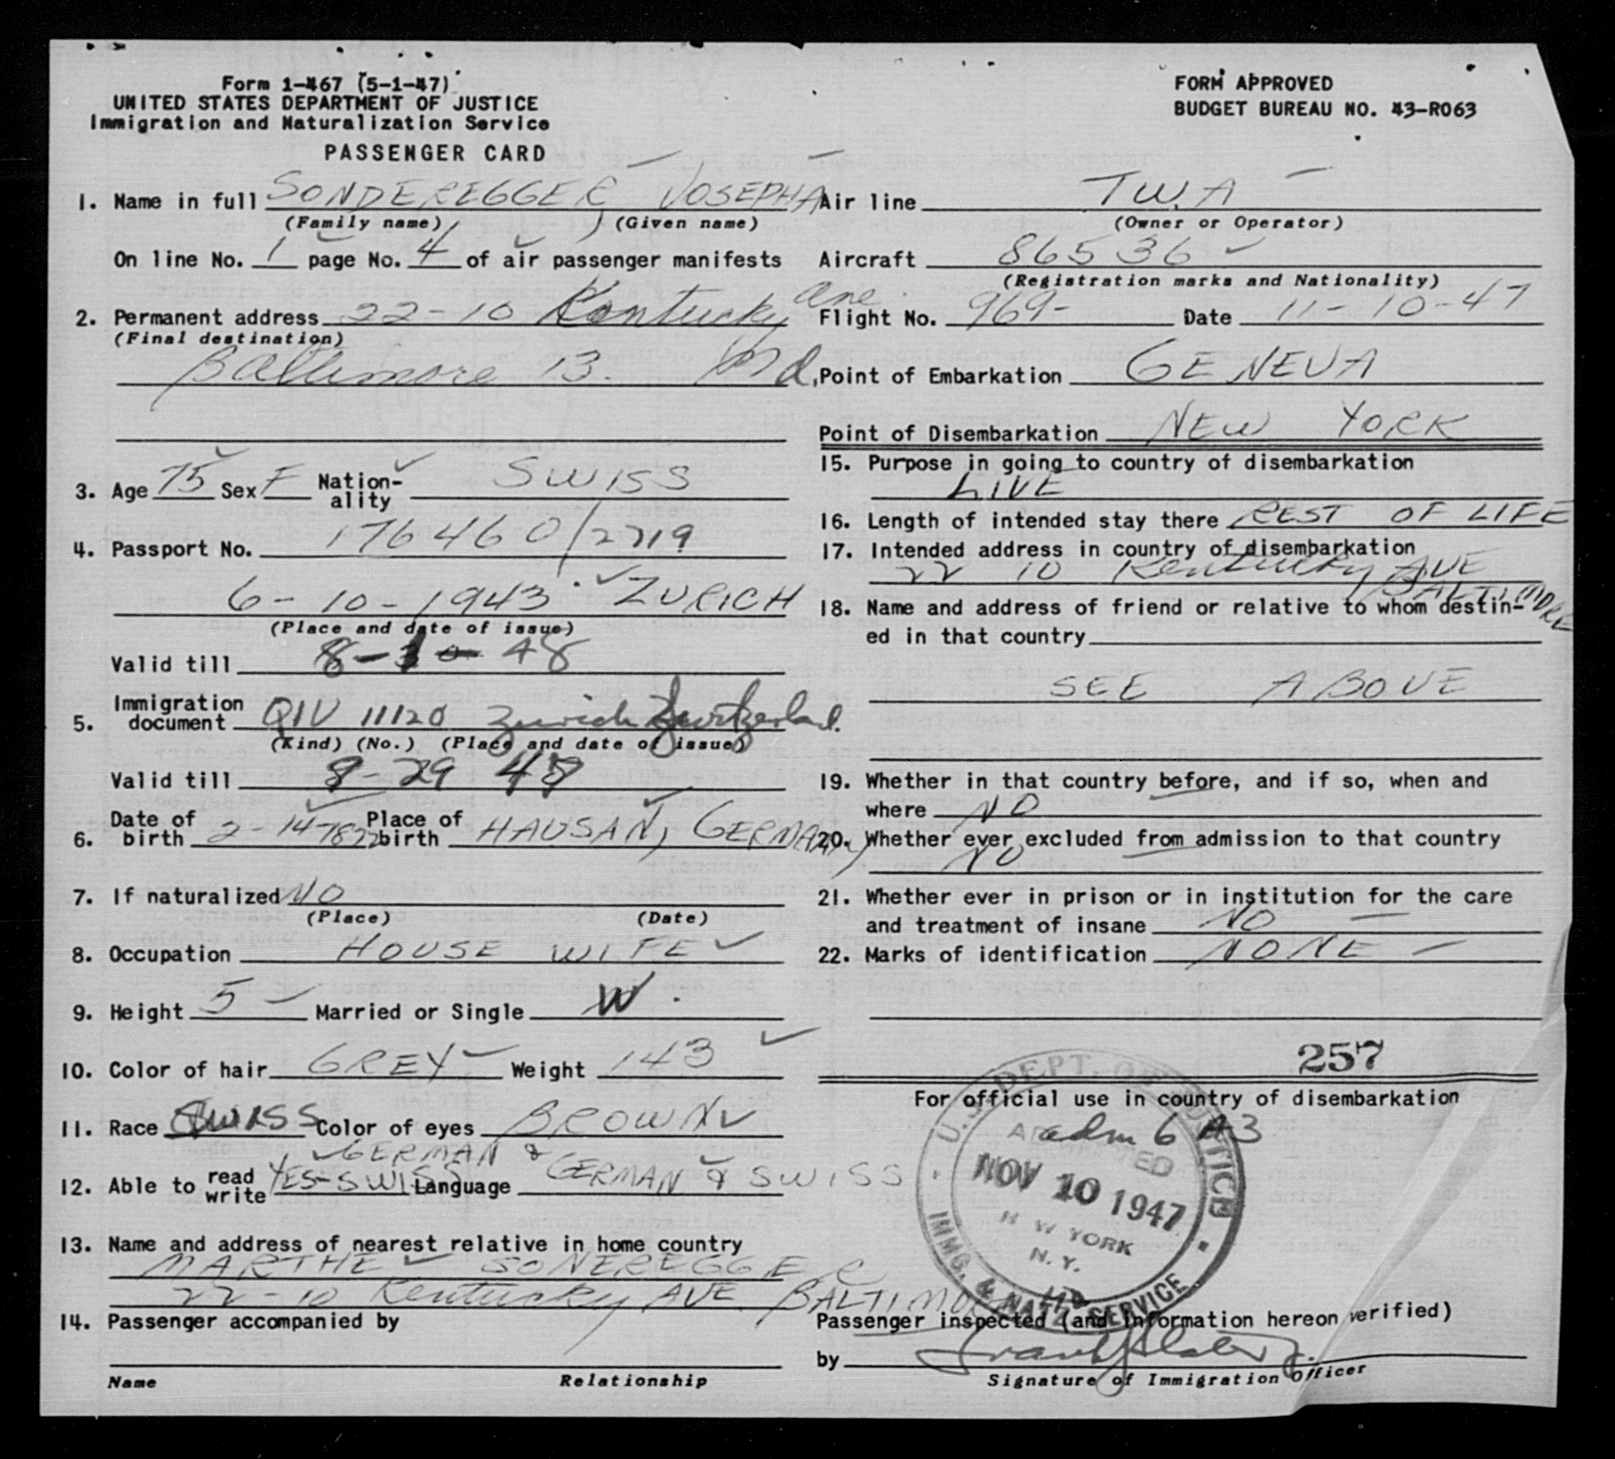 Form 1-467 (5-1-47)
UNITED STATES DEPARTMENT OF JUSTICE
Immigration and Naturalization Service
PASSENGER CARD
FORM APPROVED
BUDGET BUREAU NO. 43-R063
1. Name in full SONDEREGGER JOSEPHA
(Family name) (Given name)
On line No. 1 page No. 4 of air passenger manifests
2. Permanent address 22-10 Kentucky Ave.
(Final destination)
Baltimore 13. Md,
3. Age 75 Sex F Nation-ality SWISS
4. Passport No. 176460/2719
6-10-1943 ZURICH
(Place and date of issue)
Valid till 8-10-48
5. Immigration document QIV 11120 Zurich Switzerland.
(Kind) (No.) (Place and date of issue)
Valid till 8-29 47
6. Date of birth 2-14-1872 Place of birth HAUSAN, GERMANY
7. If naturalized NO
(Place) (Date)
8. Occupation HOUSE WIFE
9. Height 5 Married or Single W.
10. Color of hair GREY Weight 143
11. Race SWISS Color of eyes BROWN
12. Able to read write YES-SWISS GERMAN & Language GERMAN & SWISS
13. Name and address of nearest relative in home country
MARTHE SONEREGGER
22-10 Kentucky AVE. BALTIMORE
14. Passenger accompanied by
Name Relationship
Air line T.W.A
(Owner or Operator)
Aircraft 86536
(Registration marks and Nationality)
Flight No. 969- Date 11-10-47
Point of Embarkation GENEVA
Point of Disembarkation NEW YORK
15. Purpose in going to country of disembarkation
LIVE
16. Length of intended stay there REST OF LIFE
17. Intended address in country of disembarkation
22 10 Kentucky AVE
BALTIMORE
18. Name and address of friend or relative to whom destin-
ed in that country
SEE ABOVE
19. Whether in that country before, and if so, when and
where NO
20. Whether ever excluded from admission to that country
NO
21. Whether ever in prison or in institution for the care
and treatment of insane NO
22. Marks of identification NONE
257
For official use in country of disembarkation
adm 6 A3
U.S. DEPT. OF JUSTICE
ADMITTED
NOV 10 1947
NEW YORK
N.Y.
IMMG. & NATZ. SERVICE
Passenger inspected (and information hereon verified)
by
Signature of Immigration Officer